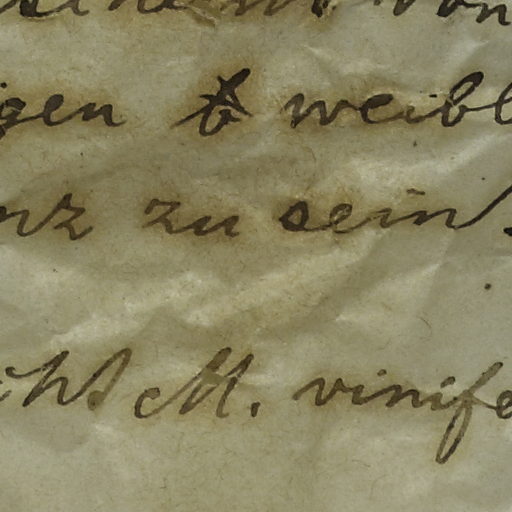 von
gen & weibl
nz zu sein
M. vinife